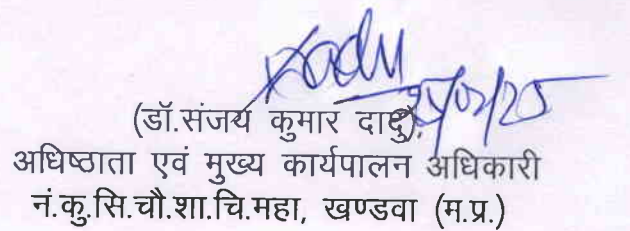 (डॉ.संजय कुमार दादु)
अधिष्ठाता एवं मुख्य कार्यपालन अधिकारी
नं.कु.सि.चौ.शा.चि.महा, खण्डवा (म.प्र.)